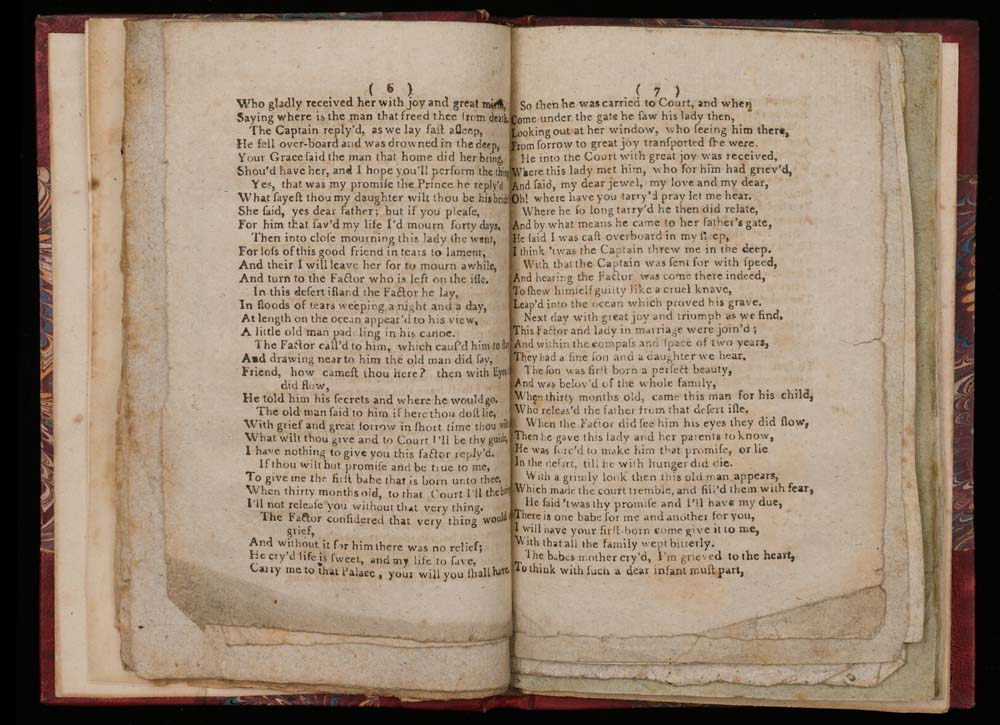 ( 6 )
Who gladly received her with joy and great mirth,
Saying where is the man that freed thee from death.
The Captain reply'd, as we lay faſt aſleep,
He fell over-board and was drowned in the deep,
Your Grace ſaid the man that home did her bring,
Shou'd have her, and I hope you'll perform the thing
Yes, that was my promiſe the Prince he reply'd
What ſayeſt thou my daughter wilt thou be his bride
She ſaid, yes dear father; but if you pleaſe,
For him that ſav'd my life I'd mourn forty days,
Then into cloſe mourning this lady ſhe went,
For loſs of this good friend in tears to lament,
And their I will leave her for to mourn awhile,
And turn to the Factor who is left on the iſle.
In this deſert iſland the Factor he lay,
In floods of tears weeping a night and a day,
At length on the ocean appear'd to his view,
A little old man padling in his canoe.
The Factor call'd to him, which cauſ'd him to
And drawing near to him the old man did ſay,
Friend, how cameſt thou here? then with Eyes
did flow,
He told him his ſecrets and where he would go.
The old man ſaid to him if here thou doſt lie,
With grief and great ſorrow in ſhort time thou
What wilt thou give and to Court I'll be thy guide,
I have nothing to give you this factor reply'd.
If thou wilt but promiſe and be true to me,
To give me the firſt babe that is born unto thee,
When thirty months old, to that Court I'll thee
I'll not releaſe you without that very thing.
The Factor conſidered that very thing would
grief,
And without it for him there was no relief;
He cry'd life is ſweet, and my life to ſave,
Carry me to that Palace, your will you ſhall have.
( 7 )
So then he was carried to Court, and when
Come under the gate he ſaw his lady then,
Looking out at her window, who ſeeing him there,
From ſorrow to great joy tranſported ſhe were.
He into the Court with great joy was received,
Where this lady met him, who for him had griev'd,
And ſaid, my dear jewel, my love and my dear,
Oh! where have you tarry'd pray let me hear.
Where he ſo long tarry'd he then did relate,
And by what means he came to her father's gate,
He ſaid I was caſt overboard in my ſleep,
I think 'twas the Captain threw me in the deep.
With that the Captain was ſent for with ſpeed,
And hearing the Factor was come there indeed,
To ſhew himſelf guilty like a cruel knave,
Leap'd into the ocean which proved his grave.
Next day with great joy and triumph as we find,
This Factor and lady in marriage were join'd;
And within the compaſs and ſpace of two years,
They had a fine ſon and a daughter we hear.
The ſon was firſt born a perfect beauty,
And was belov'd of the whole family,
When thirty months old, came this man for his child,
Who releas'd the father from that deſert iſle.
When the Factor did ſee him his eyes they did flow,
Then he gave this lady and her parents to know,
He was forc'd to make him that promiſe, or lie
In the deſart, till he with hunger did die.
With a grimly look then this old man appears,
Which made the court tremble, and fill'd them with fear,
He ſaid 'twas thy promiſe and I'll have my due,
There is one babe for me and another for you,
I will have your firſt-born come give it to me,
With that all the family wept bitterly.
The babes mother cry'd, I'm grieved to the heart,
To think with ſuch a dear infant muſt part,